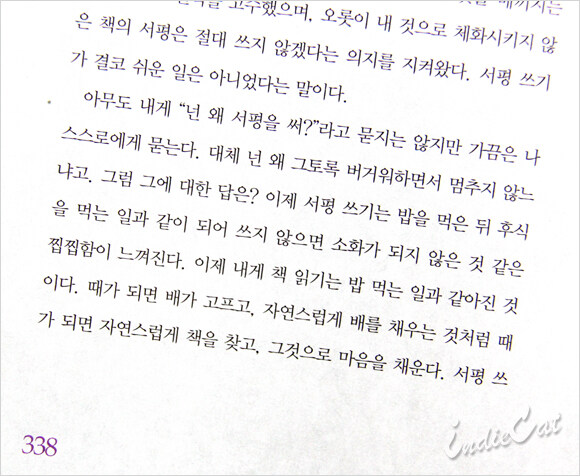 고수했으며, 오롯이 내 것으로 체화시키지 않
은 책의 서평은 절대 쓰지 않겠다는 의지를 지켜왔다. 서평 쓰기
가 결코 쉬운 일은 아니었다는 말이다.
아무도 내게 “넌 왜 서평을 써?”라고 묻지는 않지만 가끔은 나
스스로에게 묻는다. 대체 넌 왜 그토록 버거워하면서 멈추지 않느
냐고. 그럼 그에 대한 답은? 이제 서평 쓰기는 밥을 먹은 뒤 후식
을 먹는 일과 같이 되어 쓰지 않으면 소화가 되지 않은 것 같은
찝찝함이 느껴진다. 이제 내게 책 읽기는 밥 먹는 일과 같아진 것
이다. 때가 되면 배가 고프고, 자연스럽게 배를 채우는 것처럼 때
가 되면 자연스럽게 책을 찾고, 그것으로 마음을 채운다. 서평 쓰
338
indieCat